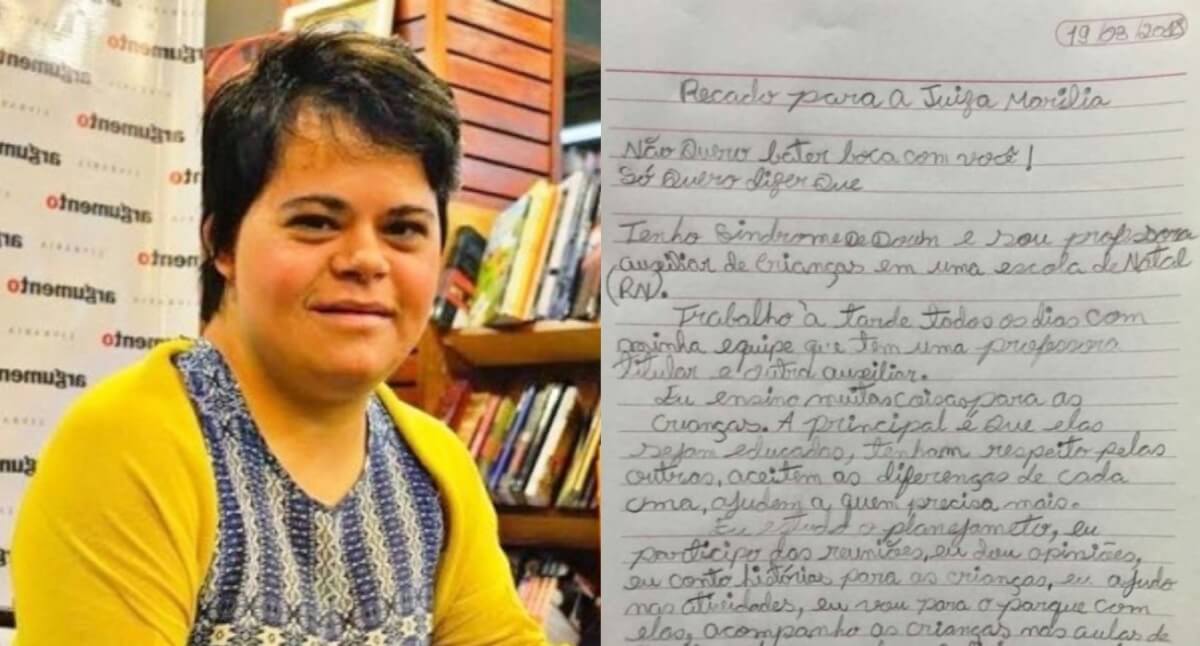 argumento
argumento
argumento
argumento
LIVRARIA
19/03/2018
Recado para a Juiza Marília
Não Quero bater boca com você!
Só Quero dizer Que
Tenho Síndrome De Down e sou professora
auxiliar de crianças em uma escola de Natal
(RN).
Trabalho à tarde todos os dias com
minha equipe que tem uma professora
titular e outra auxiliar.
Eu ensino muitas coisas para as
crianças. A principal é Que elas
sejam educadas, tenham respeito pelas
outras, aceitem as diferenças de cada
uma, ajudem a quem precisa mais.
Eu estudo o planejameto, eu
participo das reuniões, eu dou opiniões,
eu conto histórias para as crianças, eu ajudo
nas atividades, eu vou para o parque com
elas, acompanho as crianças nas aulas de